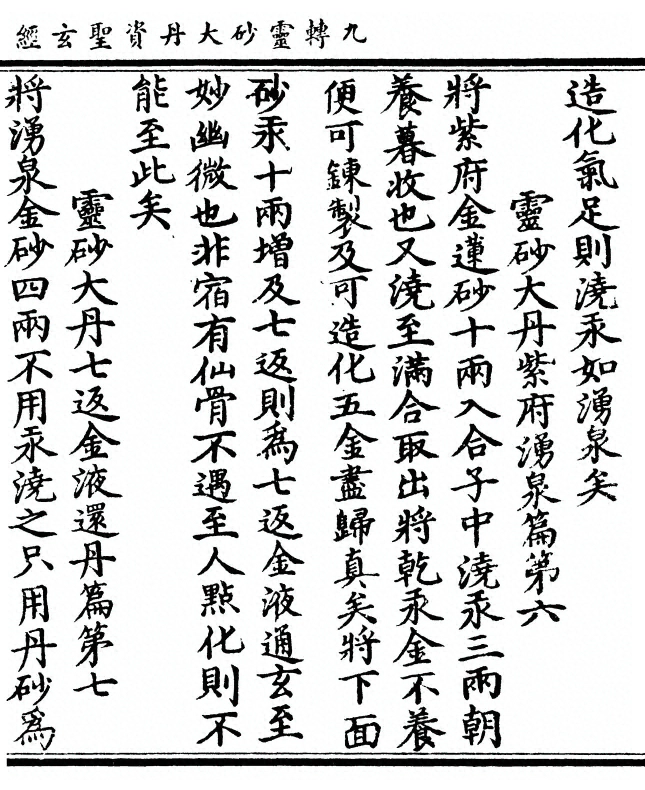 九轉靈砂大丹資聖玄經
造化氣足則澆汞如湧泉矣
靈砂大丹紫府湧泉篇第六
將紫府金蓮砂十兩入合子中澆汞三兩朝
養暮收也又澆至滿合取出將乾汞金不養
便可鍊製及可造化五金盡歸真矣將下面
砂汞十兩增及七返則爲七返金液通玄至
妙幽微也非宿有仙骨不遇至人點化則不
能至此矣
靈砂大丹七返金液還丹篇第七
將湧泉金砂四兩不用汞澆之只用丹砂爲